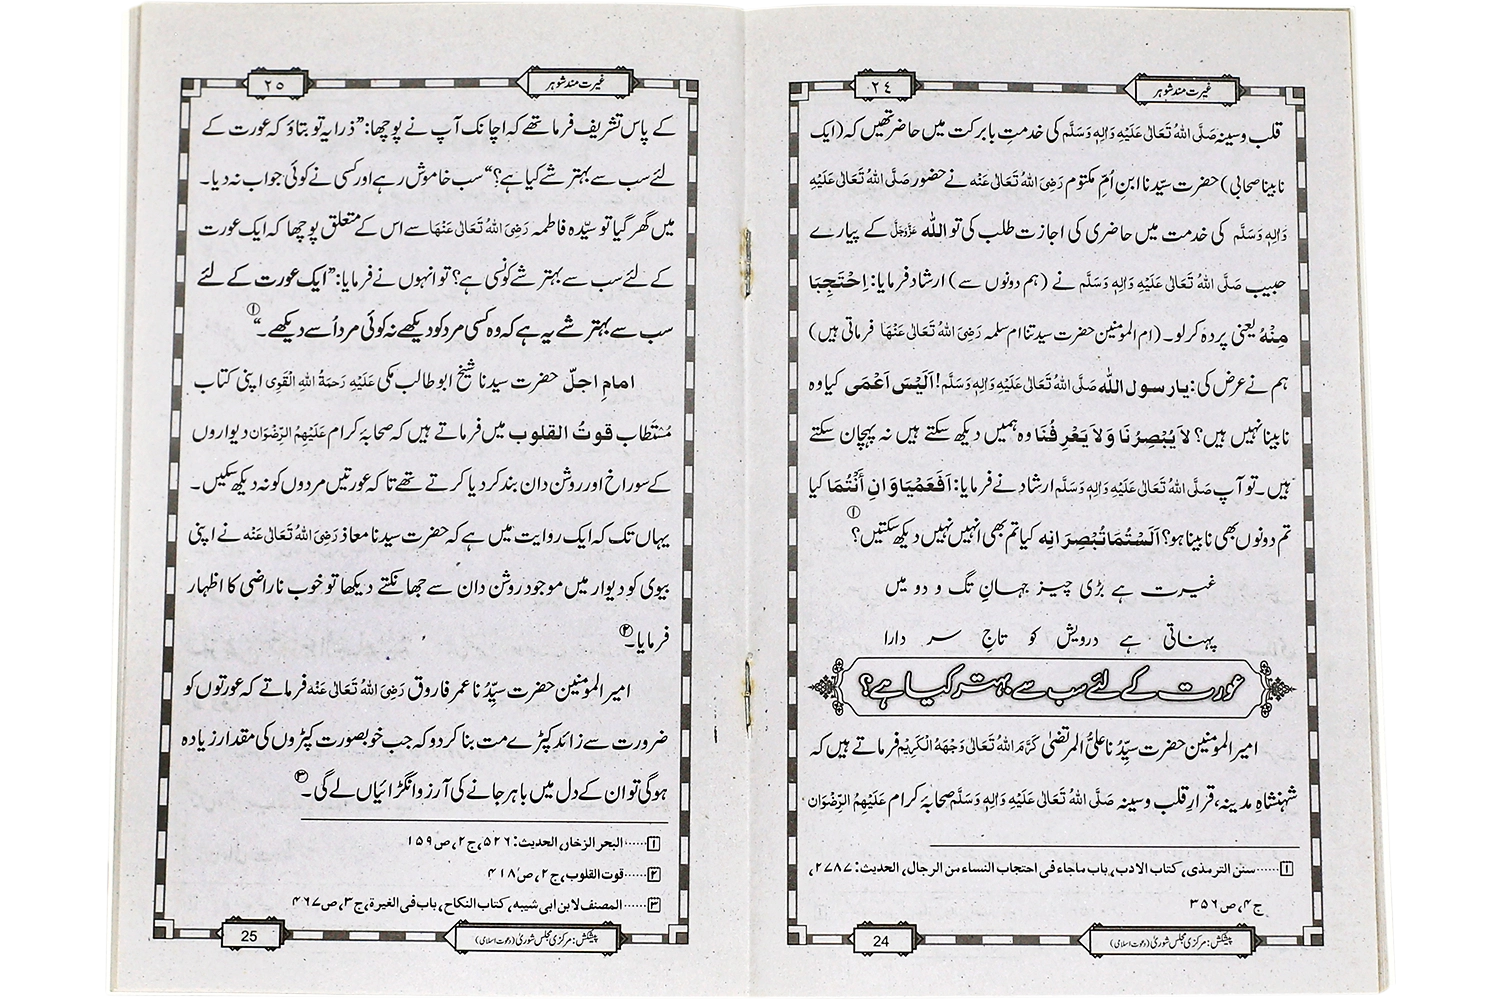 غیرت مند شوہر
٢٤
قلب وسینہ صَلَّى اللهُ تَعَالٰى عَلَيْهِ وَاٰلِهٖ وَسَلَّم کی خدمتِ بابرکت میں حاضر تھیں کہ (ایک
نابینا صحابی) حضرت سیّدنا ابنِ اُمّ مکتوم رَضِىَ اللهُ تَعَالٰى عَنْه نے حضور صَلَّى اللهُ تَعَالٰى عَلَيْهِ
وَاٰلِهٖ وَسَلَّم کی خدمت میں حاضری کی اجازت طلب کی تو اللہ عَزَّوَجَلَّ کے پیارے
حبیب صَلَّى اللهُ تَعَالٰى عَلَيْهِ وَاٰلِهٖ وَسَلَّم نے (ہم دونوں سے) ارشاد فرمایا: اِحْتَجِبَا
مِنْهُ یعنی پردہ کرلو۔ (ام المومنین حضرت سیدتنا ام سلمہ رَضِىَ اللهُ تَعَالٰى عَنْهَا فرماتی ہیں)
ہم نے عرض کی: یارسول اللہ صَلَّى اللهُ تَعَالٰى عَلَيْهِ وَاٰلِهٖ وَسَلَّم! اَلَيْسَ اَعْمٰى کیا وہ
نابینا نہیں ہیں؟ لَا يُبْصِرُنَا وَلَا يَعْرِفُنَا وہ ہمیں دیکھ سکتے ہیں نہ پہچان سکتے
ہیں۔ تو آپ صَلَّى اللهُ تَعَالٰى عَلَيْهِ وَاٰلِهٖ وَسَلَّم ارشاد نے فرمایا: اَفَعَمْيَاوَانِ أَنْتُمَا کیا
تم دونوں بھی نابینا ہو؟ اَلَسْتُمَا تُبْصِرَانِهٖ کیا تم بھی انہیں نہیں دیکھ سکتیں؟ ①
غیرت ہے بڑی چیز جہانِ تگ و دو میں
پہناتی ہے درویش کو تاجِ سر دارا
عورت کے لئے سب سے بہتر کیا ہے؟
امیر المومنین حضرت سیِّدُنا علیُّ المرتضیٰ كَرَّمَ اللهُ تَعَالٰى وَجْهَهُ الْكَرِيْم فرماتے ہیں کہ
شہنشاہِ مدینہ، قرارِ قلب وسینہ صَلَّى اللهُ تَعَالٰى عَلَيْهِ وَاٰلِهٖ وَسَلَّم صحابۂ کرام عَلَيْهِمُ الرِّضْوَان
١ ...... سنن الترمذی، کتاب الادب، باب ماجاء فی احتجاب النساء من الرجال، الحدیث: ۲۷۸۷،
ج ۴، ص ۳۵۶
پیشکش: مرکزی مجلس شوریٰ (دعوت اسلامی)
24
غیرت مند شوہر
٢٥
کے پاس تشریف فرما تھے کہ اچانک آپ نے پوچھا: ”ذرا یہ تو بتاؤ کہ عورت کے
لئے سب سے بہتر شے کیا ہے؟“ سب خاموش رہے اور کسی نے کوئی جواب نہ دیا۔
میں گھر گیا تو سیّدہ فاطمہ رَضِىَ اللهُ تَعَالٰى عَنْهَا سے اس کے متعلق پوچھا کہ ایک عورت
کے لئے سب سے بہتر شے کونسی ہے؟ تو انہوں نے فرمایا: ”ایک عورت کے لئے
سب سے بہتر شے یہ ہے کہ وہ کسی مرد کو دیکھے نہ کوئی مرد اُسے دیکھے۔“ ①
امامِ اجلّ حضرت سیدنا شیخ ابوطالب مکی عَلَيْهِ رَحْمَةُ اللهِ الْقَوِى اپنی کتاب
مُسْتَطاب قوتُ القلوب میں فرماتے ہیں کہ صحابۂ کرام عَلَيْهِمُ الرِّضْوَان دیواروں
کے سوراخ اور روشن دان بند کر دیا کرتے تھے تاکہ عورتیں مردوں کو نہ دیکھ سکیں۔
یہاں تک کہ ایک روایت میں ہے کہ حضرت سیدنا معاذ رَضِىَ اللهُ تَعَالٰى عَنْه نے اپنی
بیوی کو دیوار میں موجود روشن دان سے جھانکتے دیکھا تو خوب ناراضی کا اظہار
فرمایا۔ ②
امیر المومنین حضرت سیِّدُنا عمر فاروق رَضِىَ اللهُ تَعَالٰى عَنْه فرماتے کہ عورتوں کو
ضرورت سے زائد کپڑے مت بنا کر دو کہ جب خوبصورت کپڑوں کی مقدار زیادہ
ہوگی تو ان کے دل میں باہر جانے کی آرزو انگڑائیاں لے گی۔ ③
١ ...... البحر الزخار، الحدیث: ۵۲۶، ج ۲، ص ۱۵۹
٢ ...... قوت القلوب، ج ۲، ص ۴۱۸
٣ ...... المصنف لابن ابی شیبه، کتاب النکاح، باب فی الغیرة، ج ۳، ص ۴۶۷
پیشکش: مرکزی مجلس شوریٰ (دعوت اسلامی)
25